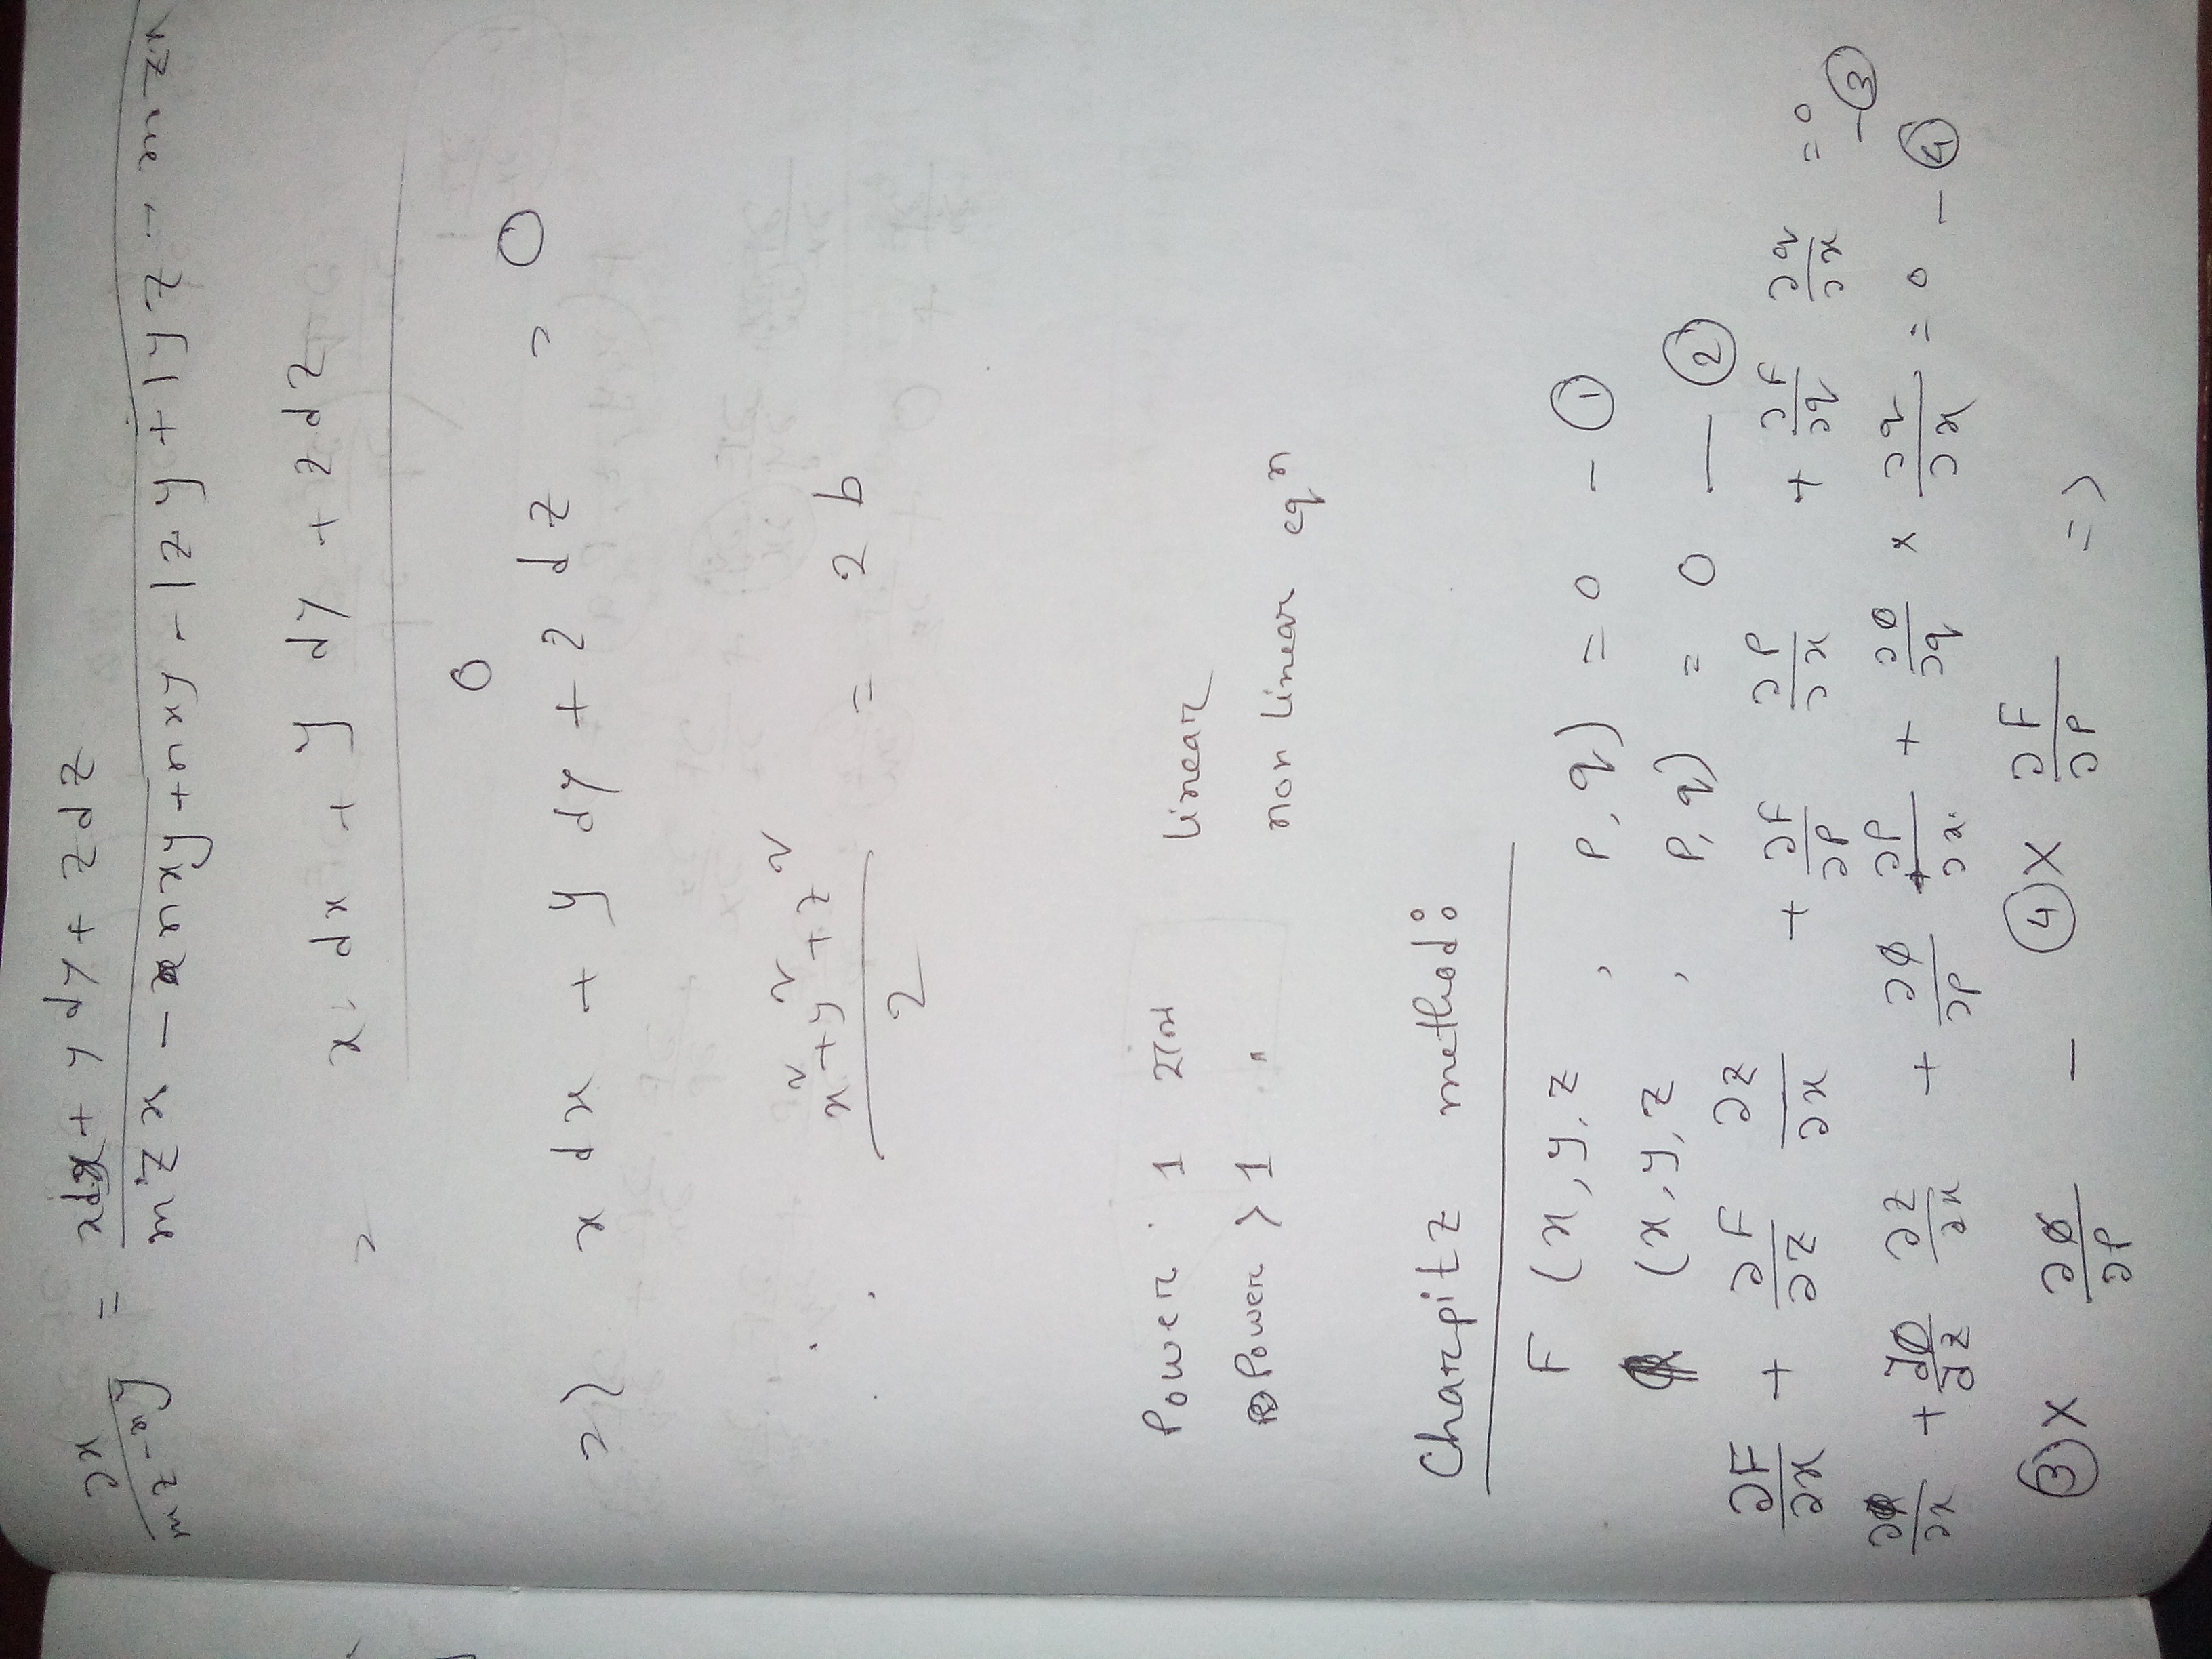 ∂x/(mz-ny) = (xdx + y dy + zdz)/(mzx - nxy + nxy - lzy + lyz - mzx)
= (x dx + y dy + z dz)/0
=> x dx + y dy + z dz = 0
∴ (x² + y² + z²)/2 = 2b
Power 1 হলে linear
Power > 1 " non linear eqn
Charpitz method:
F (x, y, z, p, q) = 0 - ①
φ (x, y, z, p, q) = 0 — ②
∂F/∂x + ∂F/∂z ∂z/∂x + ∂F/∂p ∂p/∂x + ∂F/∂q ∂q/∂x = 0 - ③
∂φ/∂x + ∂φ/∂z ∂z/∂x + ∂φ/∂p ∂p/∂x + ∂φ/∂q × ∂q/∂x = 0 - ④
③ × ∂φ/∂p - ④ × ∂F/∂p =>